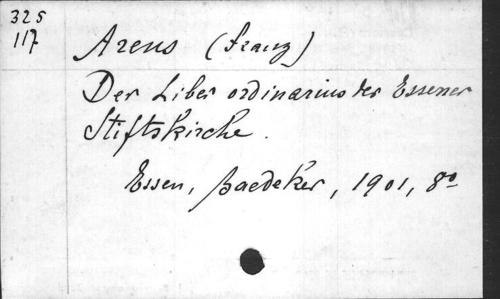 325
117
Arens (Franz)
Der Liber ordinarius der Essener
Stiftskirche.
Essen, Baedeker, 1901, 8º